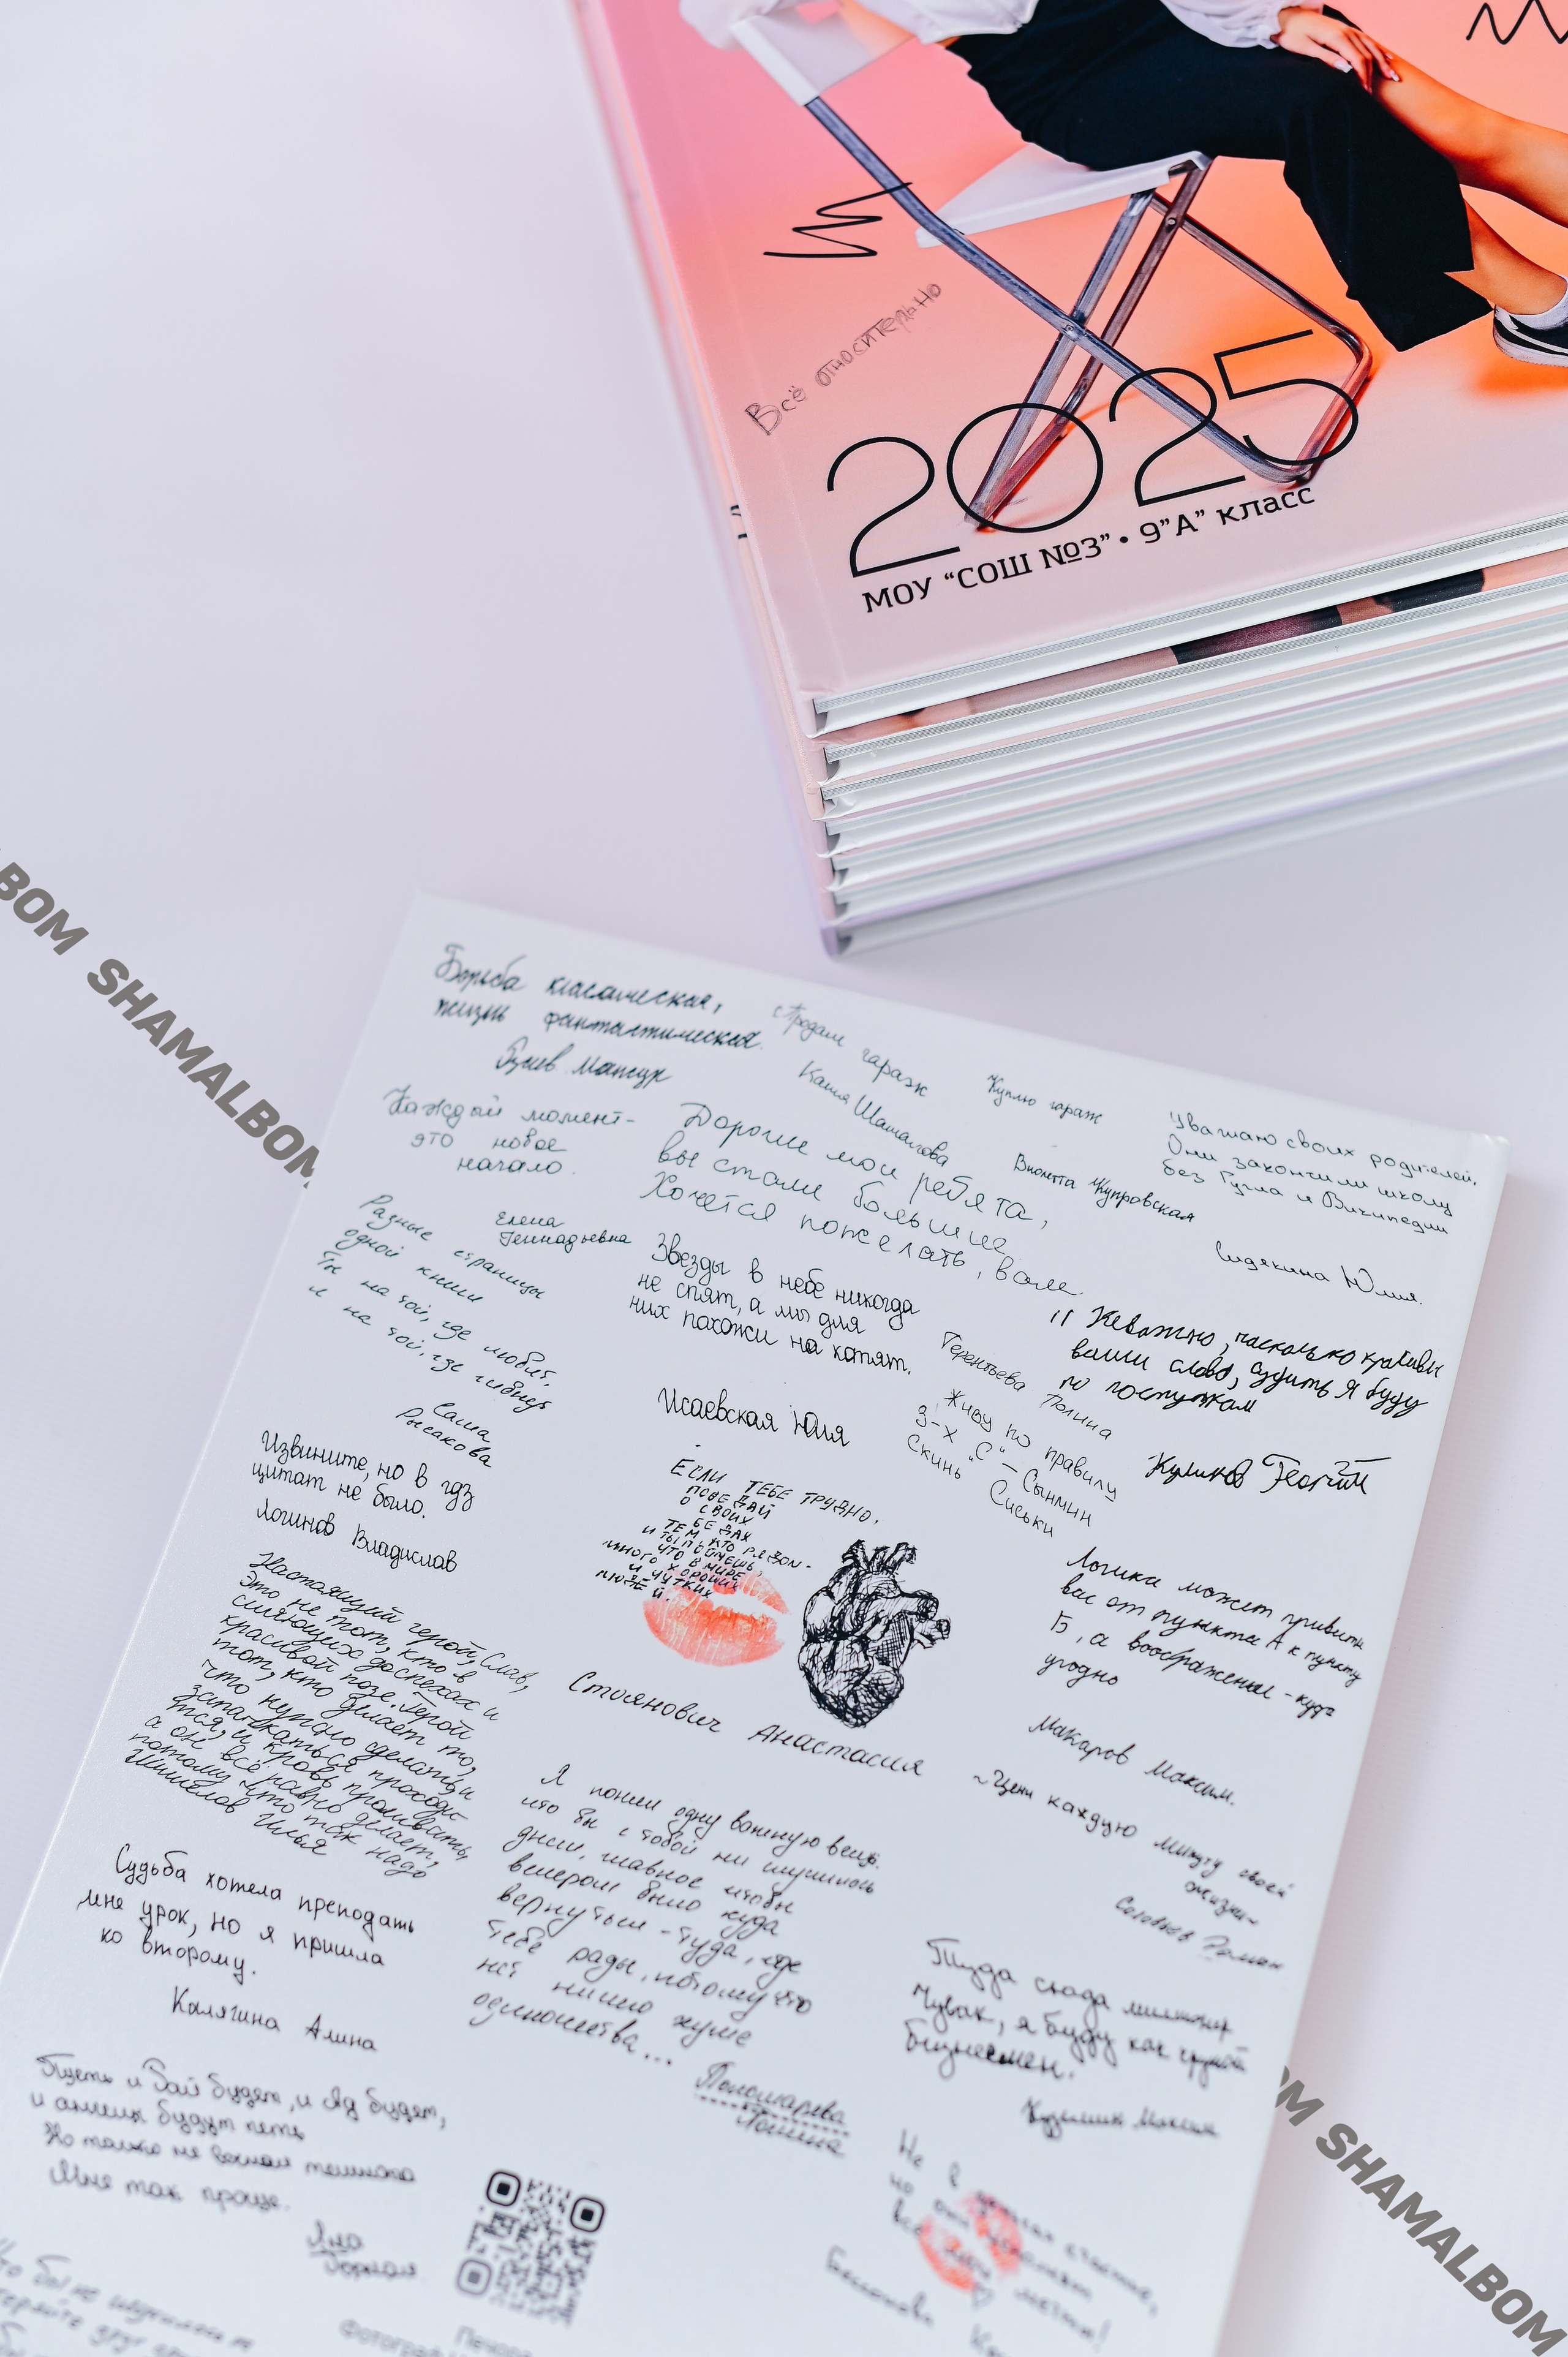 Всё относительно
2025
МОУ "СОШ №3" • 9"А" класс
SHAMALBOM
Борьба классическая,
жизнь фантастическая.
Мансур
Продам гараж
Катя
Куплю гараж
Виолетта Жупровская
Уважаю своих родителей.
Они закончили школу
без Гугла и Википедии
Сидякина Юлия.
Каждый момент-
это новое
начало.
Елена
Геннадьевна
Дорогие мои ребята,
вы стали большие.
Хочется пожелать, вам
Разные страницы
одной книги
Ты на той, где любят,
и на той, где гибнут
Саша
Русакова
Звезды в небе никогда
не спят, а мы для
них похожи на котят.
Исаевская Юлия
Терентьева Полина
" Неважно, насколько красивы
ваши слова, судить я буду
по поступкам
Куликов Георгий
Живу по правилу
3-х "С" – Сынмин
Скинь Сиськи
Извините, но в гдз
цитат не было.
Логинов Владислав
ЕСЛИ ТЕБЕ ТРУДНО,
ПОВЕДАЙ
О СВОИХ
БЕДАХ
ТЕМ, КТО РЯДОМ -
И ТЫ ПОЙМЕШЬ,
ЧТО В МИРЕ
МНОГО ХОРОШИХ
И ЧУТКИХ
ЛЮДЕЙ.
Стоянович Анастасия
Логика может привести
вас от пункта А к пункту
Б, а воображение - куда
угодно
Макаров Максим.
Настоящий герой, Слав,
Это не тот, кто в
сияющих доспехах и
красивой позе. Герой
тот, кто делает то,
что нужно сделать, и
запачкаться
и кровь проливать,
а он всё равно делает,
потому что так надо
Илья
~Цени каждую минуту своей
жизни~
Соловьев Роман
Я понял одну важную вещь.
что бы с тобой ни случилось
днём, главное чтобы
вечером было куда
вернуться - туда, где
тебе рады, потому что
нет ничего хуже
одиночества...
Пономарева
Полина
Судьба хотела преподать
мне урок, но я пришла
ко второму.
Калягина Алина
Туда сюда миллионер
Чувак, я буду как крутой
бизнесмен.
Максим
Пусть и Рай будет, и Ад будет,
и ангелы будут петь
Но только не вечная темнота
Мне так проще.
Яна
Горная
Не в
но они
все мечты!